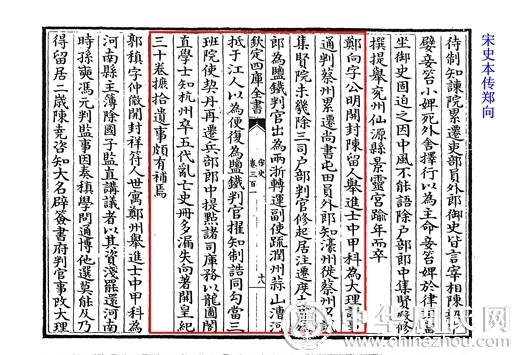 宋史本传郑向
待制知諫院累遷吏部員外郎御史皆言宰相陳執
嬖妾笞小婢死外舍擇行以為主命妾笞婢於律
坐御史固迫之因中風不能語除戶部郎中集賢修
撰提舉兗州仙源縣景靈宮踰年而卒
鄭向字公明開封陳留人舉進士中甲科為大理評事
通判蔡州累遷尚書屯田員外郎知濠州徙蔡州召
集賢院未幾除三司户部判官修起居注遷度
郎為鹽鐵判官出為兩浙轉運副使疏潤州蒜山漕河
欽定四庫全書
宋史
卷三百
十八
抵于江人以為便復為鹽鐵判官擢知制誥同勾當三
班院使契丹再遷兵部郎中提點諸司庫務以龍圖閣
直學士知杭州卒五代亂亡史冊多漏失向著開皇紀
三十卷摭拾遺事頗有補焉
郭稹字仲微開封祥符人世寓鄭州舉進士中甲科為
河南縣主簿除國子監直講議者以其資淺罷還河南
時孫奭馮元判監事因奏稹學問通博他選莫能及乃
得留居二歲陳堯咨知大名辟簽書府判官事改大理